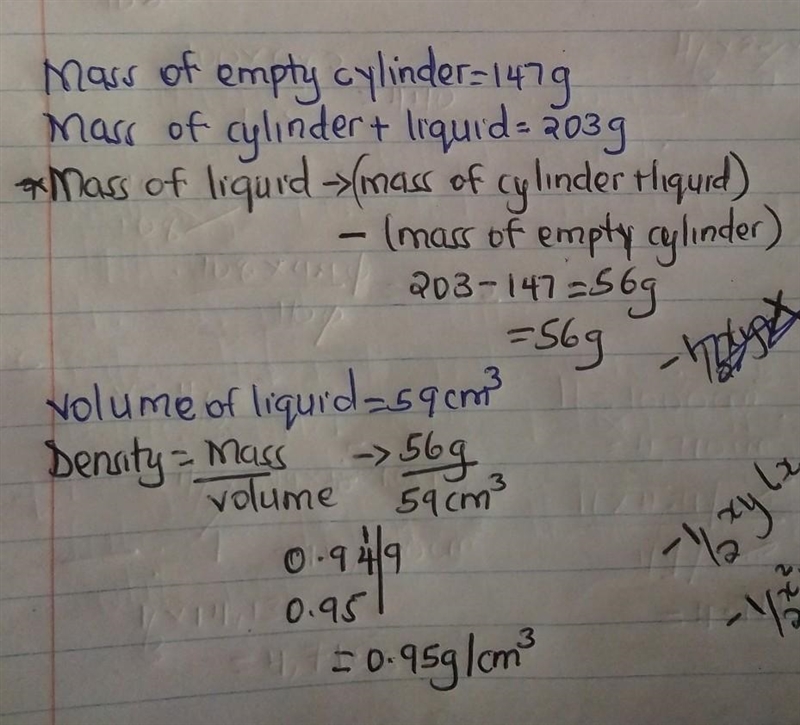 Mass of empty cylinder=147g
Mass of cylinder + liquid=203g
*Mass of liquid →(mass of cylinder +liquid)
- (mass of empty cylinder)
203-147=56g
=56g
Volume of liquid=59cm³
Density= Mass → 56g
volume 59cm³
0.94|9
0.95
=0.95g/cm³
-1/2xy(x
-1/2x²